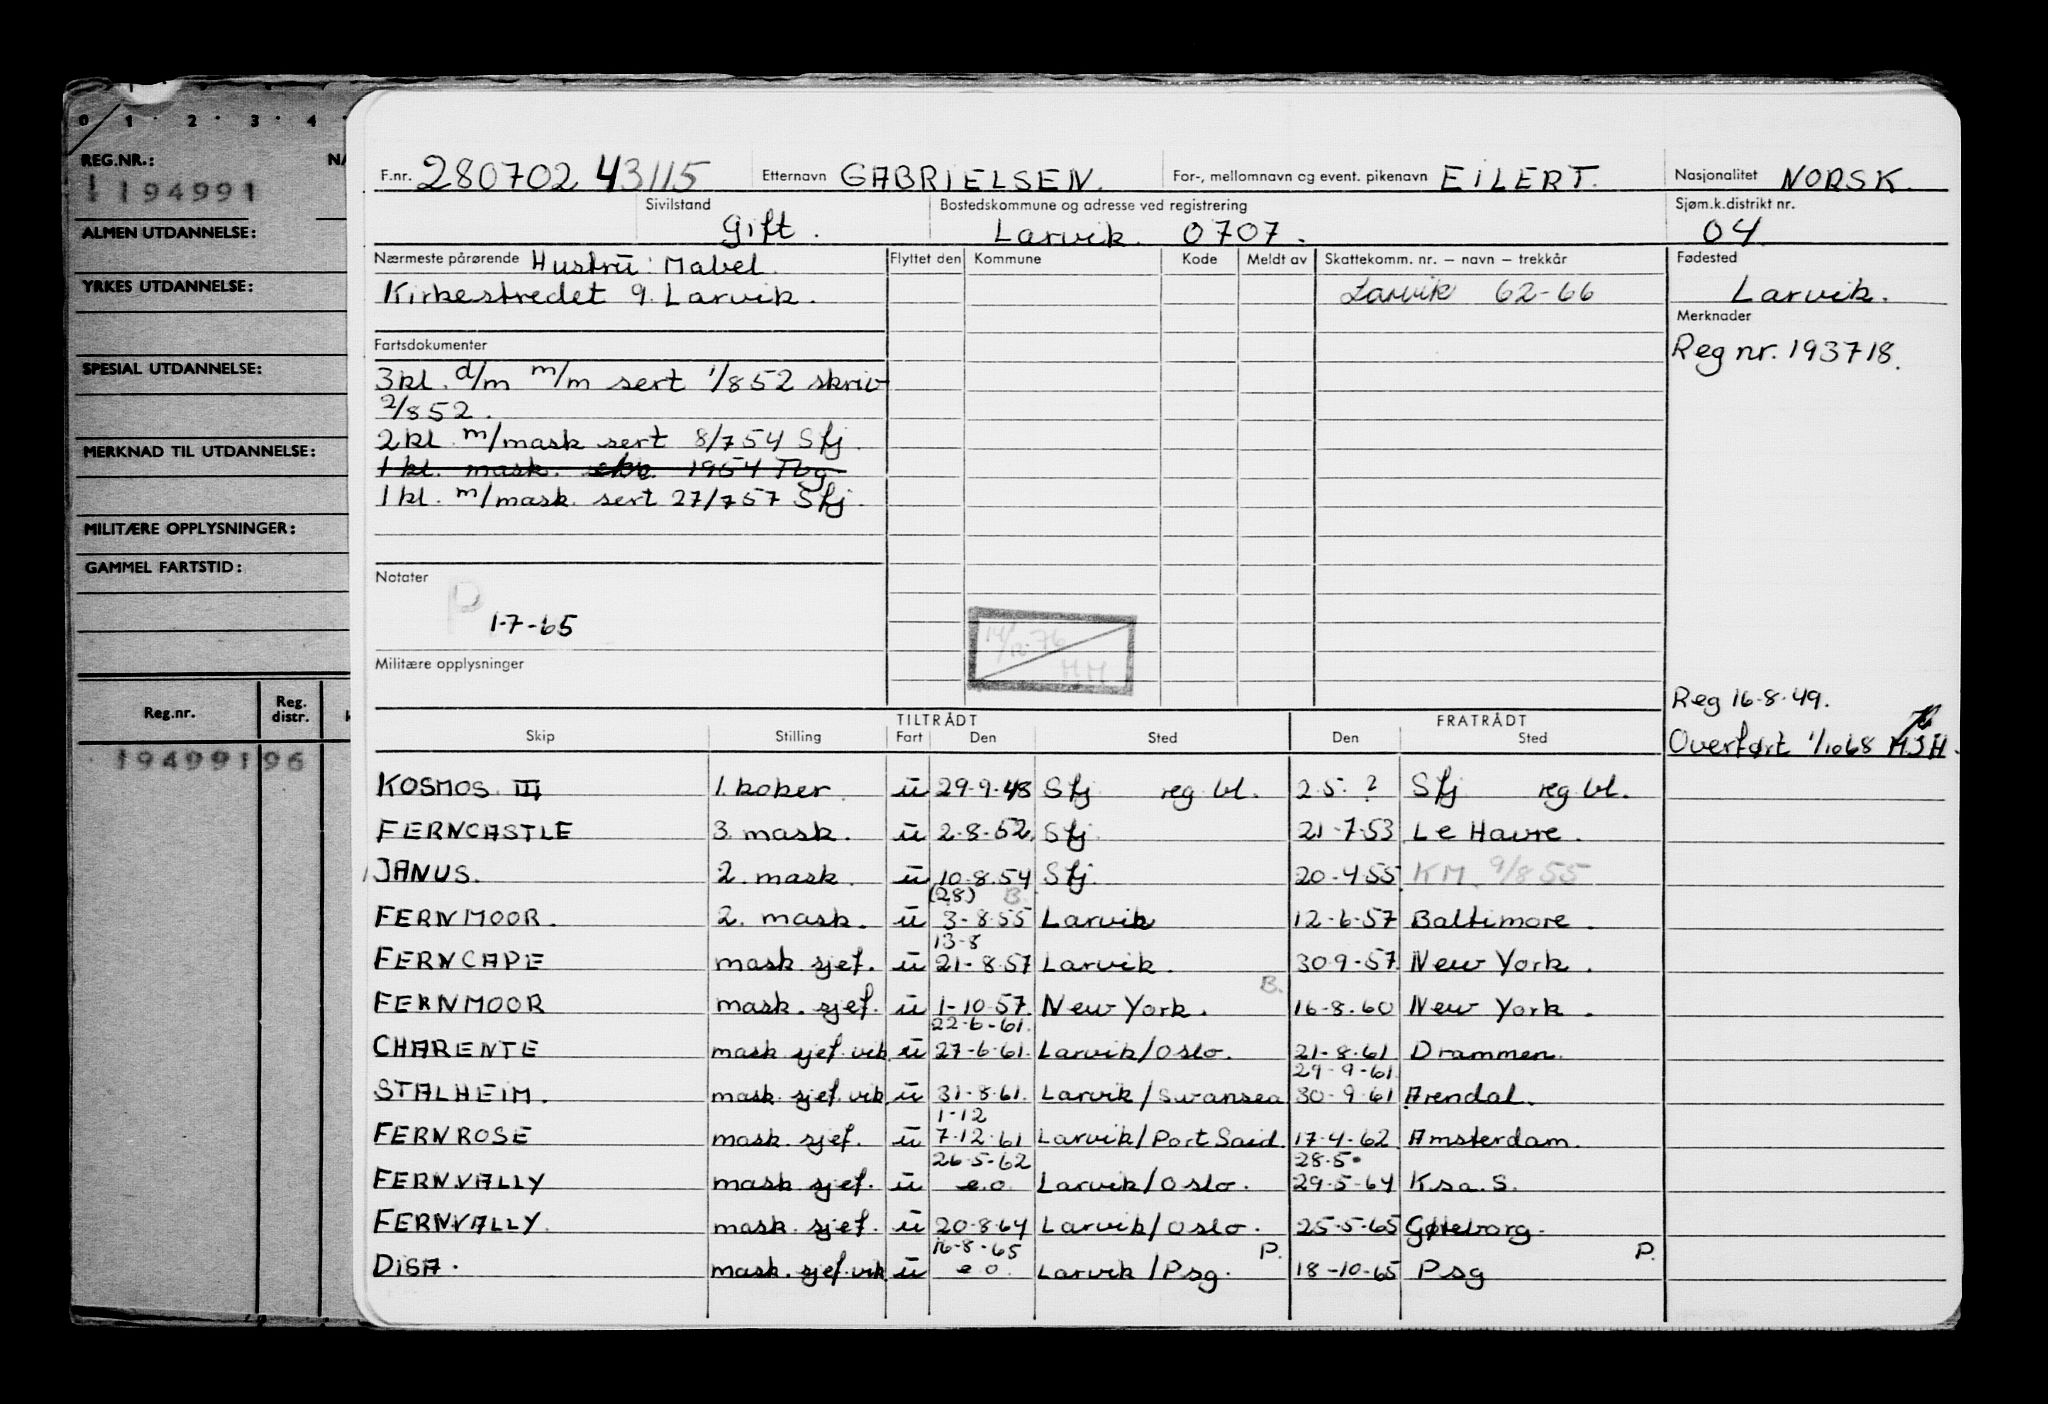 0 1 2 3 4
REG.NR.:
194991
ALMEN UTDANNELSE:
YRKES UTDANNELSE:
SPESIAL UTDANNELSE:
MERKNAD TIL UTDANNELSE:
MILITÆRE OPPLYSNINGER:
GAMMEL FARTSTID:
Reg.nr. Reg. distr.
194991 96
F.nr. 280702 43115 Etternavn GABRIELSEN. For-, mellomnavn og event. pikenavn EILERT. Nasjonalitet NORSK.
Sivilstand Gift. Bostedskommune og adresse ved registrering Larvik. 0707. Sjøm.k.distrikt nr. 04
Nærmeste pårørende Hustru: Mabel.
Kirkestredet 9. Larvik.
Flyttet den Kommune Kode Meldt av Skattekomm. nr. – navn – trekkår
Larvik 62-66
Fødested
Larvik.
Merknader
Reg nr. 193718.
Fartsdokumenter
3kl. d/m m/m sert 1/8 52 skriv
2/8 52.
2kl m/mask sert 8/7 54 Sfj.
1 kl. mask. 1954 Tbg
1 kl. m/mask. sert 27/7 57 Sfj.
Notater
P 1-7-65
14/12-76
HM
Militære opplysninger
Reg 16-8-49.
Overført 1/10 68 HJH.
TILTRÅDT FRATRÅDT
Skip Stilling Fart Den Sted Den Sted
KOSMOS III 1. koker. u 29-9-48 Sfj reg bl. 2-5-? Sfj reg bl.
FERNCASTLE 3. mask. u 2-8-52. Sfj 21-7-53 Le Havre.
JANUS. 2. mask. u 10-8-54 Sfj. 20-4-55 KM. 9/8 55
(28) B.
FERNMOOR. 2. mask. u 3-8-55 Larvik 12-6-57 Baltimore.
13-8
FERNCAPE mask sjef. u 21-8-57 Larvik. 30-9-57 New York.
B.
FERNMOOR mask. sjef. u 1-10-57 New York. 16-8-60 New York.
22-6-61.
CHARENTE mask sjef. vik u 27-6-61. Larvik/Oslo. 21-8-61 Drammen.
29-9-61
STALHEIM. mask. sjef. vik u 31-8-61. Larvik/Swansea 30-9-61 Arendal.
1-12
FERNROSE mask. sjef. u 7-12-61 Larvik/Port Said. 17-4-62 Amsterdam.
26-5-62 28-5-
FERNVALLY mask sjef. u e.o. Larvik/Oslo. 29-5-64 Ksa. S.
FERNVALLY. mask sjef. u 20-8-64 Larvik/Oslo. 25-5-65 Gøteborg.
16-8-65 P. P.
DISA. mask. sjef. vik u e.o. Larvik/Psg. 18-10-65 Psg